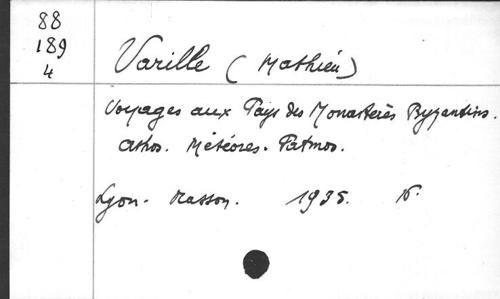 88
189
4
Varille (Mathieu)
Voyages aux Pays des Monastères Byzantins.
Athos. Météores. Patmos.
Lyon. Masson. 1935.